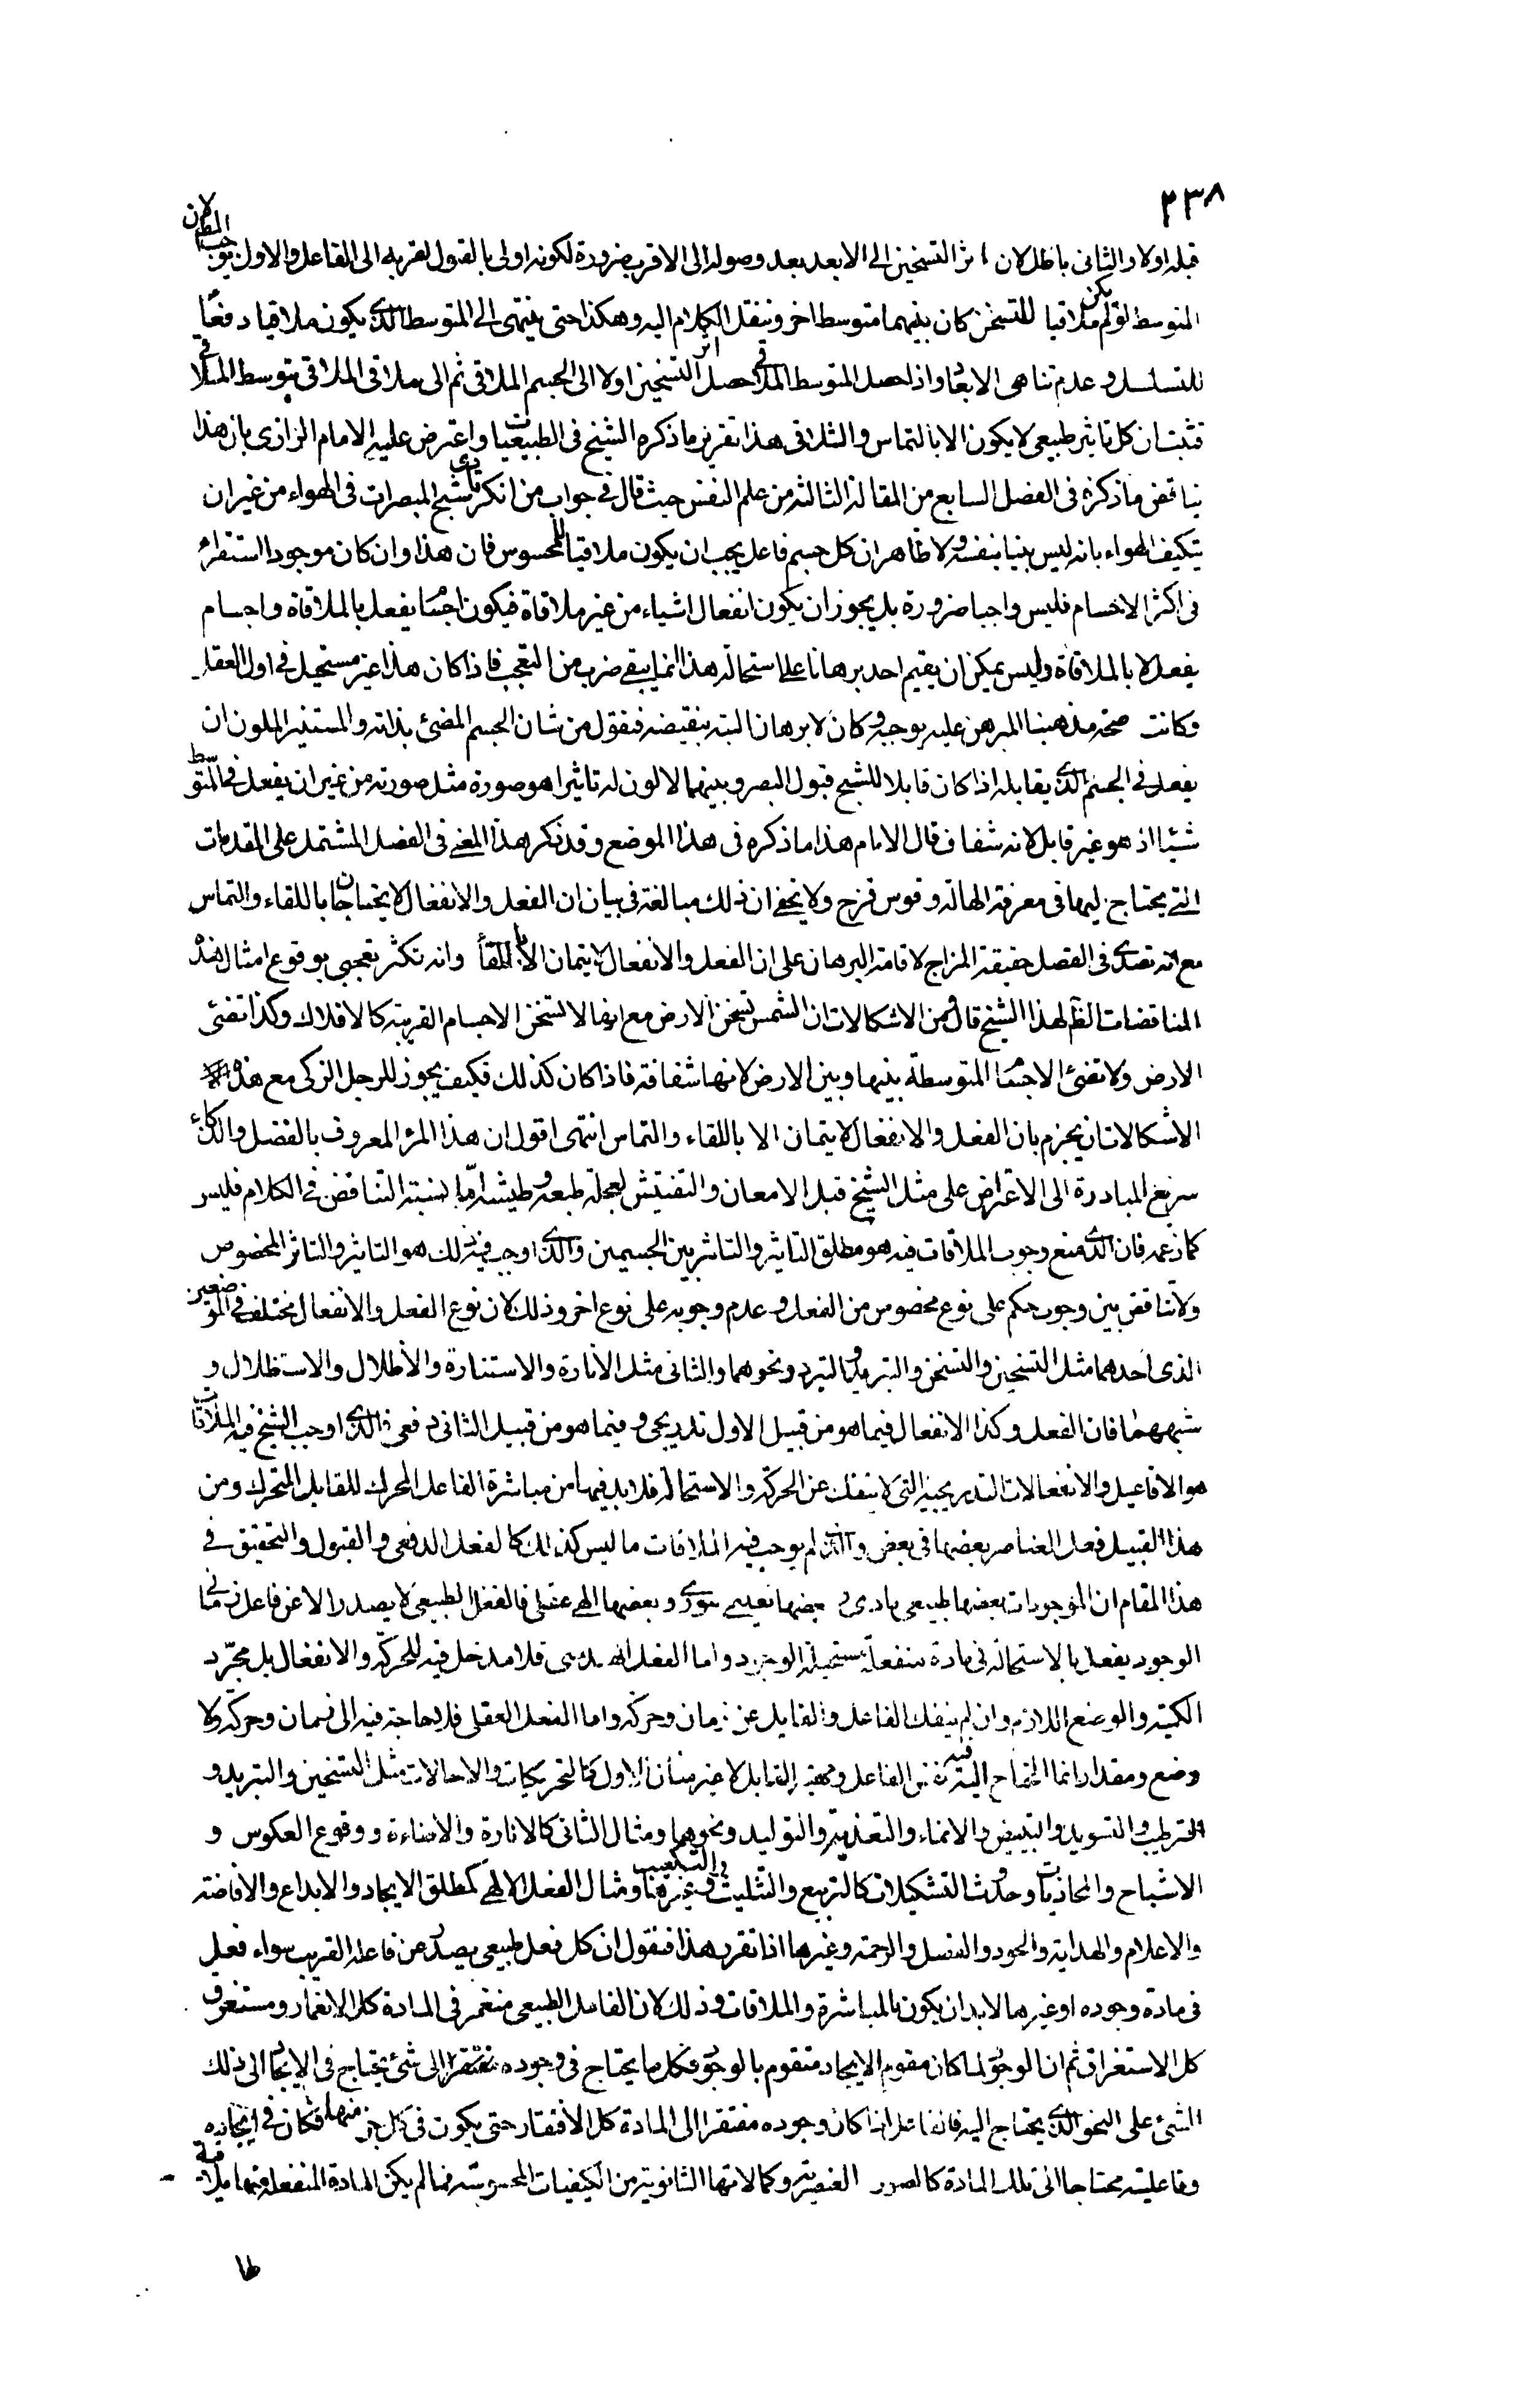 ٢٣٨
قبله اولا والثانى باطل لان اثر التسخين الى الابعد بعد وصوله الى الاقرب ضرورة لكونه اولى بالقبول لقربه الى الفاعل والاول يوجب المط لان
المتوسط لو لم يكن ملاقيا للمتسخن كان بينهما متوسط اخر وننقل الكلام اليه وهكذا حتى ينتهى الى المتوسط الذى يكون ملاقيا دفعًا
للتسلسل وعدم تناهى الابعاد واذا حصل المتوسط الملاقى حصل اثر التسخين اولا الى الجسم الملاقى ثم الى ملاقى الملاقى بتوسط الملاقى
فثبت ان كل تاثير طبيعى لا يكون الا بالتماس والتلاقى هذا تقرير ما ذكره الشيخ فى الطبيعيات واعترض عليه الامام الرازى بان هذا
يناقض ما ذكره فى الفصل السابع من المقالة الثالثه من علم النفس حيث قال فى جواب من انكر تادى شبح المبصرات فى الهواء من غير ان
يتكيف الهواء بانه ليس بينا بنفسه ولا ظاهر ان كل جسم فاعل يجب ان يكون ملاقيا للمحسوس فان هذا وان كان موجودا استقراء
فى اكثر الاجسام فليس واجبا ضرورة بل يجوز ان يكون انفعال اشياء من غير ملاقاة فيكون اجسام يفعل بالملاقاة واجسام
يفعل لا بالملاقاة وليس يمكن ان يقيم احد برهانا على استحالة هذا انما يبقى ضرب من التعجب فاذا كان هذا غير مستحيل فى اول العقل
وكانت صحة مذهبنا المبرهن عليه يوجبه وكان لا برهان البته بنقيضه فنقول من شان الجسم المضئ بذاته والمستنير الملون ان
يفعل فى الجسم الذى يقابله اذا كان قابلا للشبح قبول البصر وبينهما لا لون له تاثيرا هو صورة مثل صورته من غير ان يفعل فى المتوسط
شيئا اذ هو غير قابل لانه شفاف قال الامام هذا ما ذكره فى هذا الموضع وقد ذكر هذا المعنى فى الفصل المشتمل على المقدمات
التى يحتاج اليها فى معرفة الهالة وقوس قزح ولا يخفى ان ذلك مبالغة فى بيان ان الفعل والانفعال لا يحتاجان باللقاء والتماس
مع انه تصدى فى الفصل حقيقة المزاج لاقامة البرهان على ان الفعل والانفعال لا يتمان الا باللقاء وانه تكثر تعجبى بوقوع امثال هذه
المناقضات الظم لهذا الشيخ قال ومن الاشكالات ان الشمس تسخن الارض مع انها لا تسخن الاجسام القريبة كالافلاك وكذا تضئ
الارض ولا تضئ الاجسام المتوسطة بينها وبين الارض لانها شفافة فاذا كان كذلك فكيف يجوز للرجل الزكى مع هذه
الاشكالات ان يجزم بان الفعل والانفعال لا يتمان الا باللقاء والتماس انتهى اقول ان هذا المرء المعروف بالفضل والذكاء
سريع المبادرة الى الاعتراض على مثل الشيخ قبل الامعان والتفتيش لعجلة طبعه وطيشه اما نسبة التناقض فى الكلام فليس
كما زعمه فان الذى منع وجوب الملاقات فيه هو مطلق التاثير والتاثر بين الجسمين والذى اوجب فيه ذلك هو التاثير والتاثر المخصوص
ولا تناقض بين وجوب حكم على نوع مخصوص من الفعل وعدم وجوبه على نوع اخر وذلك لان نوع الفعل والانفعال مختلف فى الموضعين
الذى احدهما مثل التسخين والتسخن والتبريد والتبرد ونحوهما والثانى مثل الانارة والاستنارة والاظلال والاستظلال و
شبههما فان الفعل وكذا الانفعال فيما هو من قبيل الاول تدريجى وفيما هو من قبيل الثانى دفعى فالذى اوجب الشيخ فيه الملاقات
هو الافاعيل والانفعالات التدريجية التى لا تنفك عن الحركة والاستحالة فلا بد فيها من مباشرة الفاعل المحرك للقابل المتحرك ومن
هذا القبيل فعل العناصر بعضها فى بعض والذى لم يوجب فيه الملاقات ما ليس كذلك كالفعل الدفعى والقبول والتحقيق فى
هذا المقام ان الموجودات بعضها طبيعى مادى وبعضها تعليمى صورى وبعضها الهى عقلى فالفعل الطبيعى لا يصدر الا عن فاعل زمانى
الوجود يفعل بالاستحالة فى مادة منفعلة مستحيلة الوجود واما الفعل التعليمى فلا مدخل فيه للحركة والانفعال بل مجرّد
الكمية والوضع اللازم وان لم ينفك الفاعل والقابل عن زمان وحركة واما الفعل العقلى فلا حاجة فيه الى زمان وحركة ولا
وضع ومقدار انما المحتاج اليه فيه ذات الفاعل ومهية القابل لا غير مثال الاول كالتحريكات والاحالات مثل التسخين والتبريد و
الترطيب والتسويد والتبييض والانماء والتغذية والتوليد ونحوها ومثال الثانى كالانارة والاضاءة ووقوع العكوس و
الاشباح والمحاذيات وحدوث التشكيلات كالتربيع والتثليث والتكعيب وغيرها ومثال الفعل الالهى كمطلق الايجاد والابداع والافاضة
والاعلام والهداية والجود والفضل والرحمة وغيرها اذا تقرر هذا فنقول ان كل فعل طبيعى يصدر عن فاعله القريب سواء فعل
فى مادة وجوده او غيرها لا بد ان يكون بالمباشرة والملاقات وذلك لان الفاعل الطبيعى منغمر فى المادة كل الانغمار ومستغرق
كل الاستغراق ثم ان الوجود لما كان مقوم الايجاد متقوم بالوجود فكل ما يحتاج فى وجوده مفتقرا الى شئ يحتاج فى الايجاد الى ذلك
الشئ على النحو الذى يحتاج اليه فالفاعل اذا كان وجوده مفتقرا الى المادة كل الافتقار حتى يكون فى كل جزء منها فكان فى ايجاده
وفاعليته محتاجا الى تلك المادة كالصور العنصرية وكمالاتها الثانوية من الكيفيات المحسوسة فما لم يكن المادة المنفعلة عنها ملاقية
لها